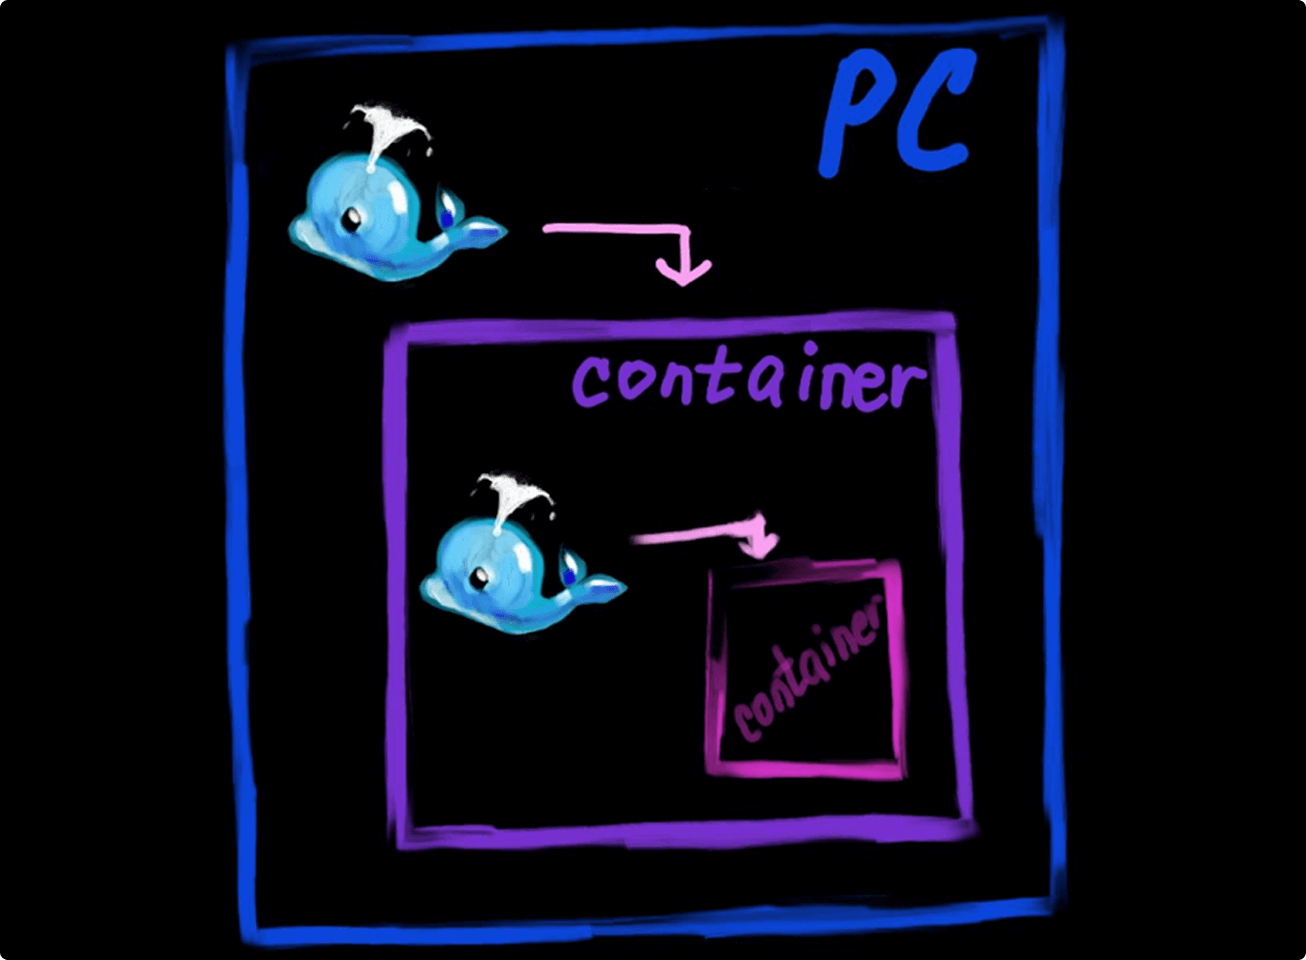 PC
container
container